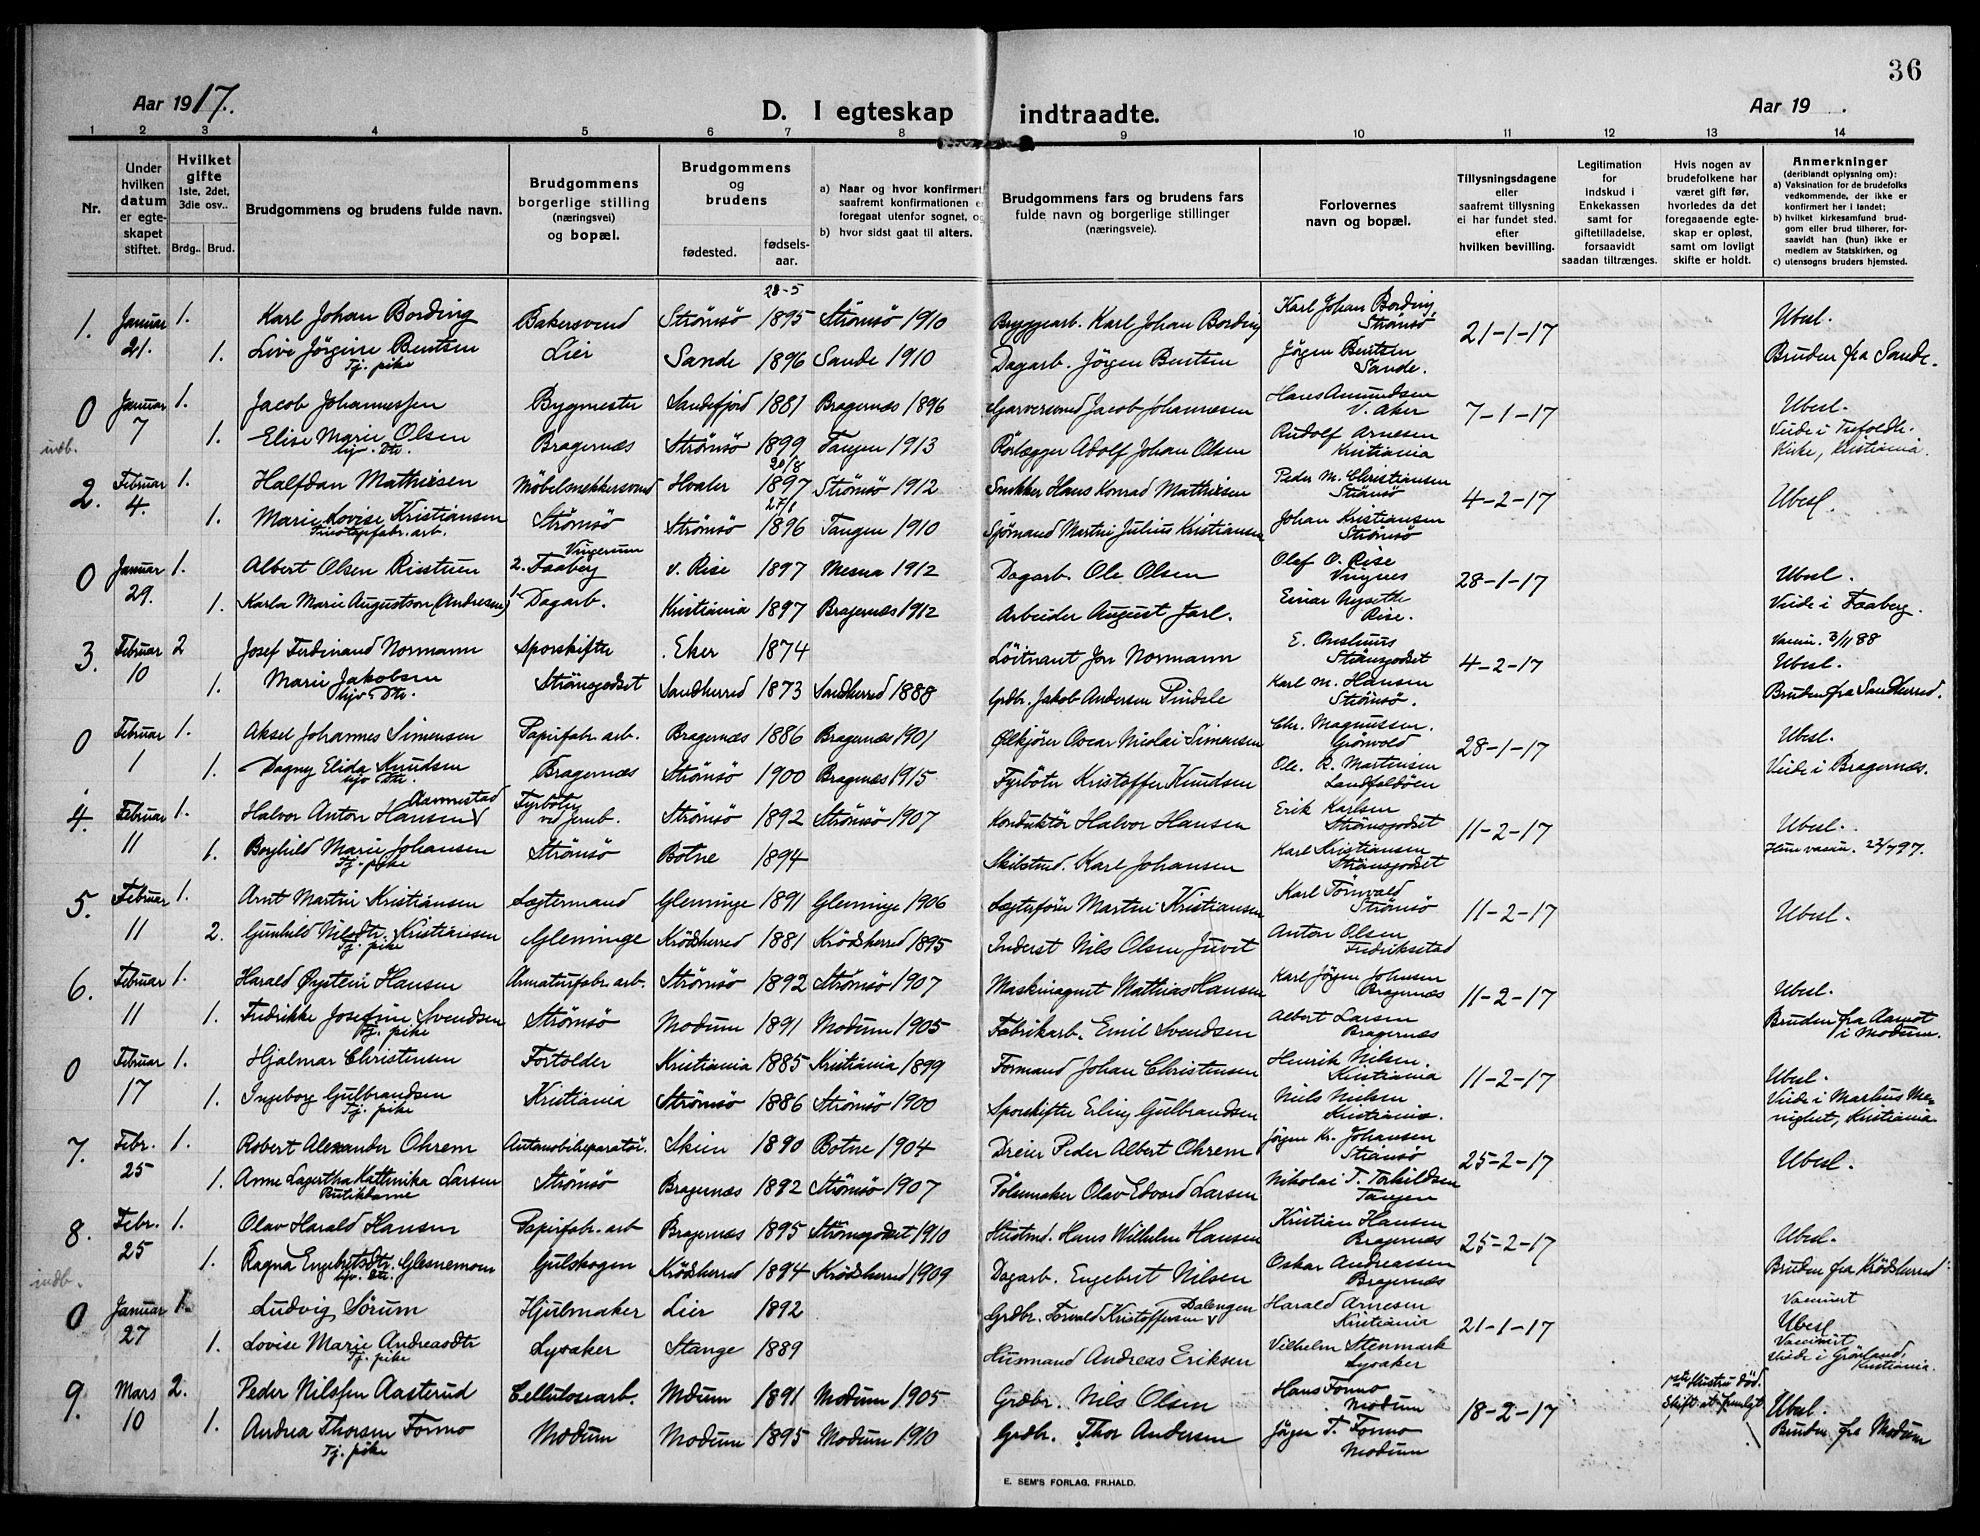 36
Aar 1917.
D. I egteskap indtraadte.
Aar 19 .
1 2 3 4 5 6 7 8 9 10 11 12 13 14
Nr.
Under hvilken datum er egteskapet stiftet.
Hvilket gifte 1ste, 2det, 3die osv..
Brdg.. Brud.
Brudgommens og brudens fulde navn.
Brudgommens borgerlige stilling (næringsvei) og bopæl.
Brudgommens og brudens
fødested. fødsels-aar.
a) Naar og hvor konfirmert saafremt konfirmationen er foregaat utenfor sognet, og
b) hvor sidst gaat til alters.
Brudgommens fars og brudens fars fulde navn og borgerlige stillinger (næringsveie).
Forlovernes navn og bopæl.
Tillysningsdagene eller saafremt tillysning ei har fundet sted. efter hvilken bevilling.
Legitimation for indskud i Enkekassen samt for giftetilladelse, forsaavidt saadan tiltrænges.
Hvis nogen av brudefolkene har været gift før, hvorledes da det foregaaende egteskap er opløst, samt om lovligt skifte er holdt.
Anmerkninger (deriblandt oplysning om):
a) Vaksination for de brudefolks vedkommende, der ikke er konfirmert her i landet;
b) hvilket kirkesamfund brudgom eller brud tilhører, forsaavidt han (hun) ikke er medlem av Statskirken, og
c) utensogns bruders hjemsted.
28-5
1. Januar 1. Karl Johan Bording Bakersvend Strömsö 1895 Strömsö 1910 Bryggearb. Karl Johan Bording Karl Johan Bording, Strömsö 21-1-17 Ubesl.
21. 1. Live Jörgine Bentsen Tj. pike Lier Sande 1896 Sande 1910 Dagarb. Jörgen Bentsen Jörgen Bentsen Sande. Bruden fra Sande.
0 Januar 1. Jacob Johannessen Bygmester Sandefjord 1881 Bragernæs 1896 Garversvend Jacob Johannesen Hans Amundsen V. Aker 7-1-17 Ubesl.
indb. 7 1. Elise Marie Olsen hjv. Dtr. Bragernæs Strömsö 1899 Tangen 1913 Rörlægger Adolf Johan Olsen Rudolf Arnesen Kristiania Viede i Trefoldh. Kirke, Kristiania.
20/8
2. Februar 1. Halfdan Mathisen Möbelsnekkersvend Hvaler 1897 Strömsö 1912 Snekker Hans Konrad Mathisen Peder M. Christiansen Strömsö 4-2-17 Ubesl.
4. 1. Marie Lovise Kristiansen arb. Strömsö Strömsö 1896 Tangen 1910 Sjömand Martin Julius Kristiansen Johan Kristiansen Strömsö
0 Januar 1. Albert Olsen 2. Faaberg V. Rise 1897 Mesna 1912 Dagarb. Ole Olsen Olaf O. Rise 28-1-17 Ubesl.
29. 1. Karla Marie Augustson (Andresen) 1. Dagarb. Kristiania 1897 Bragernæs 1912 Arbeider August Jarl. Einar Nyseth Rise. Viede i Faaberg.
3. Februar 2 Josef Ferdinand Normann Sporskifter Eker 1874 Löitnant Jon Normann E. Strömsgodset 4-2-17 Vaccin. 3/11 88 Ubesl.
10 1. Marie Jakobsen hjv. Dtr. Strömsgodset Sandherred 1873 Sandherred 1888 Grdbr. Jakob Andersen Pindsle Karl M. Hansen Strömsö. Bruden fra Sandherred.
0 Februar 1. Aksel Johannes Simensen Papirfabr. arb. Bragernæs 1886 Bragernæs 1901 Ølkjörer Oscar Nicolai Simensen Chr. Magnussen. Grönvold 28-1-17 Ubesl.
1 1. Dagny Elida Knudsen hjv. Dtr. Bragernæs Strömsö 1900 Bragernæs 1915 Fyrböter Kristoffer Knudsen Ole R. Martinsen Landfaldöen Viede i Bragernæs.
4. Februar 1. Halvor Anton Hansen Aannestad Fyrböter ved jernb. Strömsö 1892 Strömsö 1907 Konduktör Halvor Hansen Erik Karlsen Strömsgodset 11-2-17 Ubesl.
11 1. Borghild Marie Johansen Tj. pike Strömsö Botne 1894 Karl Johansen Karl Kristiansen Strömsgodset Hun vaccin.
5. Februar 1. Arnt Martin Kristiansen Lægtermand Glemminge 1891 Glemminge 1906 Lægterförer Martin Kristiansen Karl Törnvald Strömsö 11-2-17 Ubesl.
11 2. Gunhild Nilsdtr. Kristiansen Tj. pike Glemminge Krödsherred 1881 Krödsherred 1895 Inderst Nils Olsen Juvet Anton Olsen Fredrikstad
6. Februar 1. Harald Øystein Hansen Armaturfabr. arb. Strömsö 1892 Strömsö 1907 Maskinagent Mathias Hansen Karl Jörgen Johnsen Bragernæs 11-2-17 Ubesl.
11 1. Fredrikke Josefine Svendsen Tj. pike Strömsö Modum 1891 Modum 1905 Fabrikarb. Emil Svendsen Albert Larsen Bragernæs Bruden fra Aamot i Modum.
0 Februar 1. Hjalmar Christensen Fortolder Kristiania 1885 Kristiania 1899 Formand Johan Christensen Henrik Nilsen. Kristiania 11-2-17 Ubesl.
17 1. Ingeborg Gulbrandsen Tj. pike Kristiania Strömsö 1886 Strömsö 1900 Sporskifter Erling Gulbrandsen Niels Nilsen Kristiania. Viede i Markus Menighet, Kristiania
7. Febr. 1. Robert Alexander Ohrem Automobilreparatör. Skien 1890 Botne 1904 Dreier Peder Albert Ohrem Jörgen Kr. Johansen Strömsö 25-2-17 Ubesl.
25 1. Anne Lagertha Kathinka Larsen Butikdame Strömsö Bragernæs 1892 Strömsö 1907 Pölsemaker Olav Edvard Larsen Nikolai T. Torkildsen Tangen
8. Febr. 1. Olav Harald Hansen Papirfabr. arb Bragernæs 1895 Strömsgodset 1910 Hans Wilhelm Hansen Kristian Hansen Bragernæs 25-2-17 Ubesl.
25 1. Ragna Engebretsdtr. Glesnemoen hjv. Dtr. Gulskogen Krödsherred 1894 Krödsherred 1909 Dagarb. Engebret Nilsen Oskar Andreassen Bragernæs Bruden fra Krödsherred
indb.
0 Januar 1. Ludvig Sörum Hjulmaker Lier 1892 Grdbr. Torvald Kristoffersen Dalengen Harald Arnesen Kristiania 21-1-17 Vaccinert Ubesl
27 1. Lovise Marie Andreasdtr Tj. pike Lysaker Stange 1889 Husmand Andreas Eriksen Vilhelm Stenmark Lysaker Vaccinert Viede i Grönland, Kristiania.
9. Mars 2. Peder Nilssen Aasterud Cellulosearb. Modum 1891 Modum 1905 Grdbr. Nils Olsen Hans Formo Modum 18-2-17 Hustru död. Ubesl.
10 1. Andrea Thorsen Formo Tj. pike Modum Modum 1895 Modum 1910 Grdbr. Thor Andersen Jörgen T. Formo Modum Bruden fra Modum
E. SEM'S FORLAG. FR.HALD.